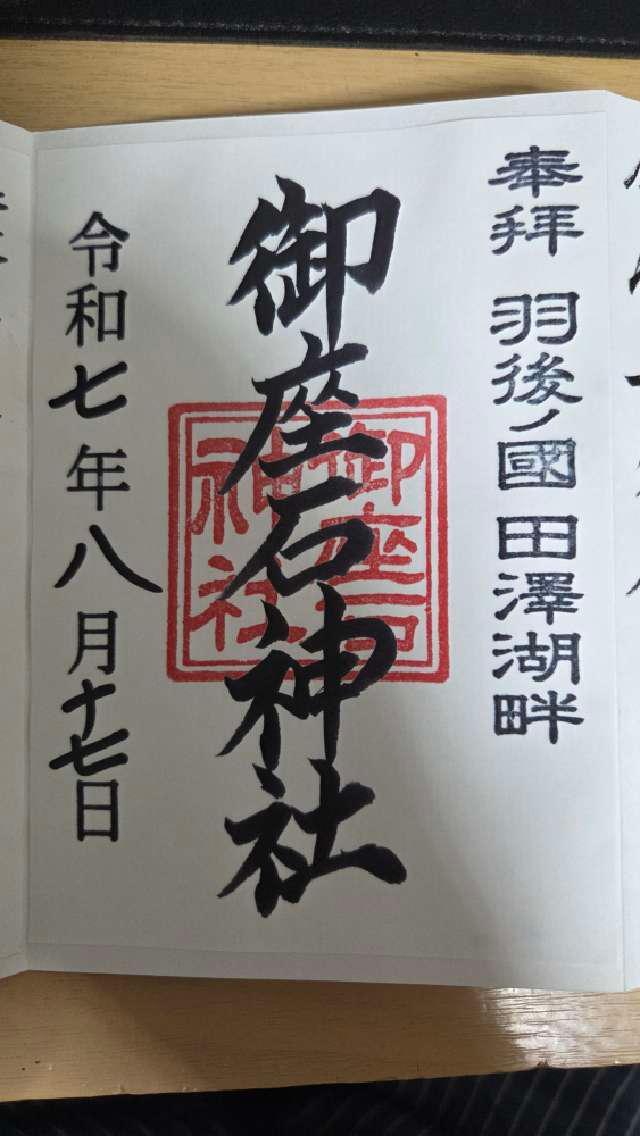 奉拝 羽後ノ國 田澤湖畔
御座石神社
御座石
神社
令和七年八月十七日